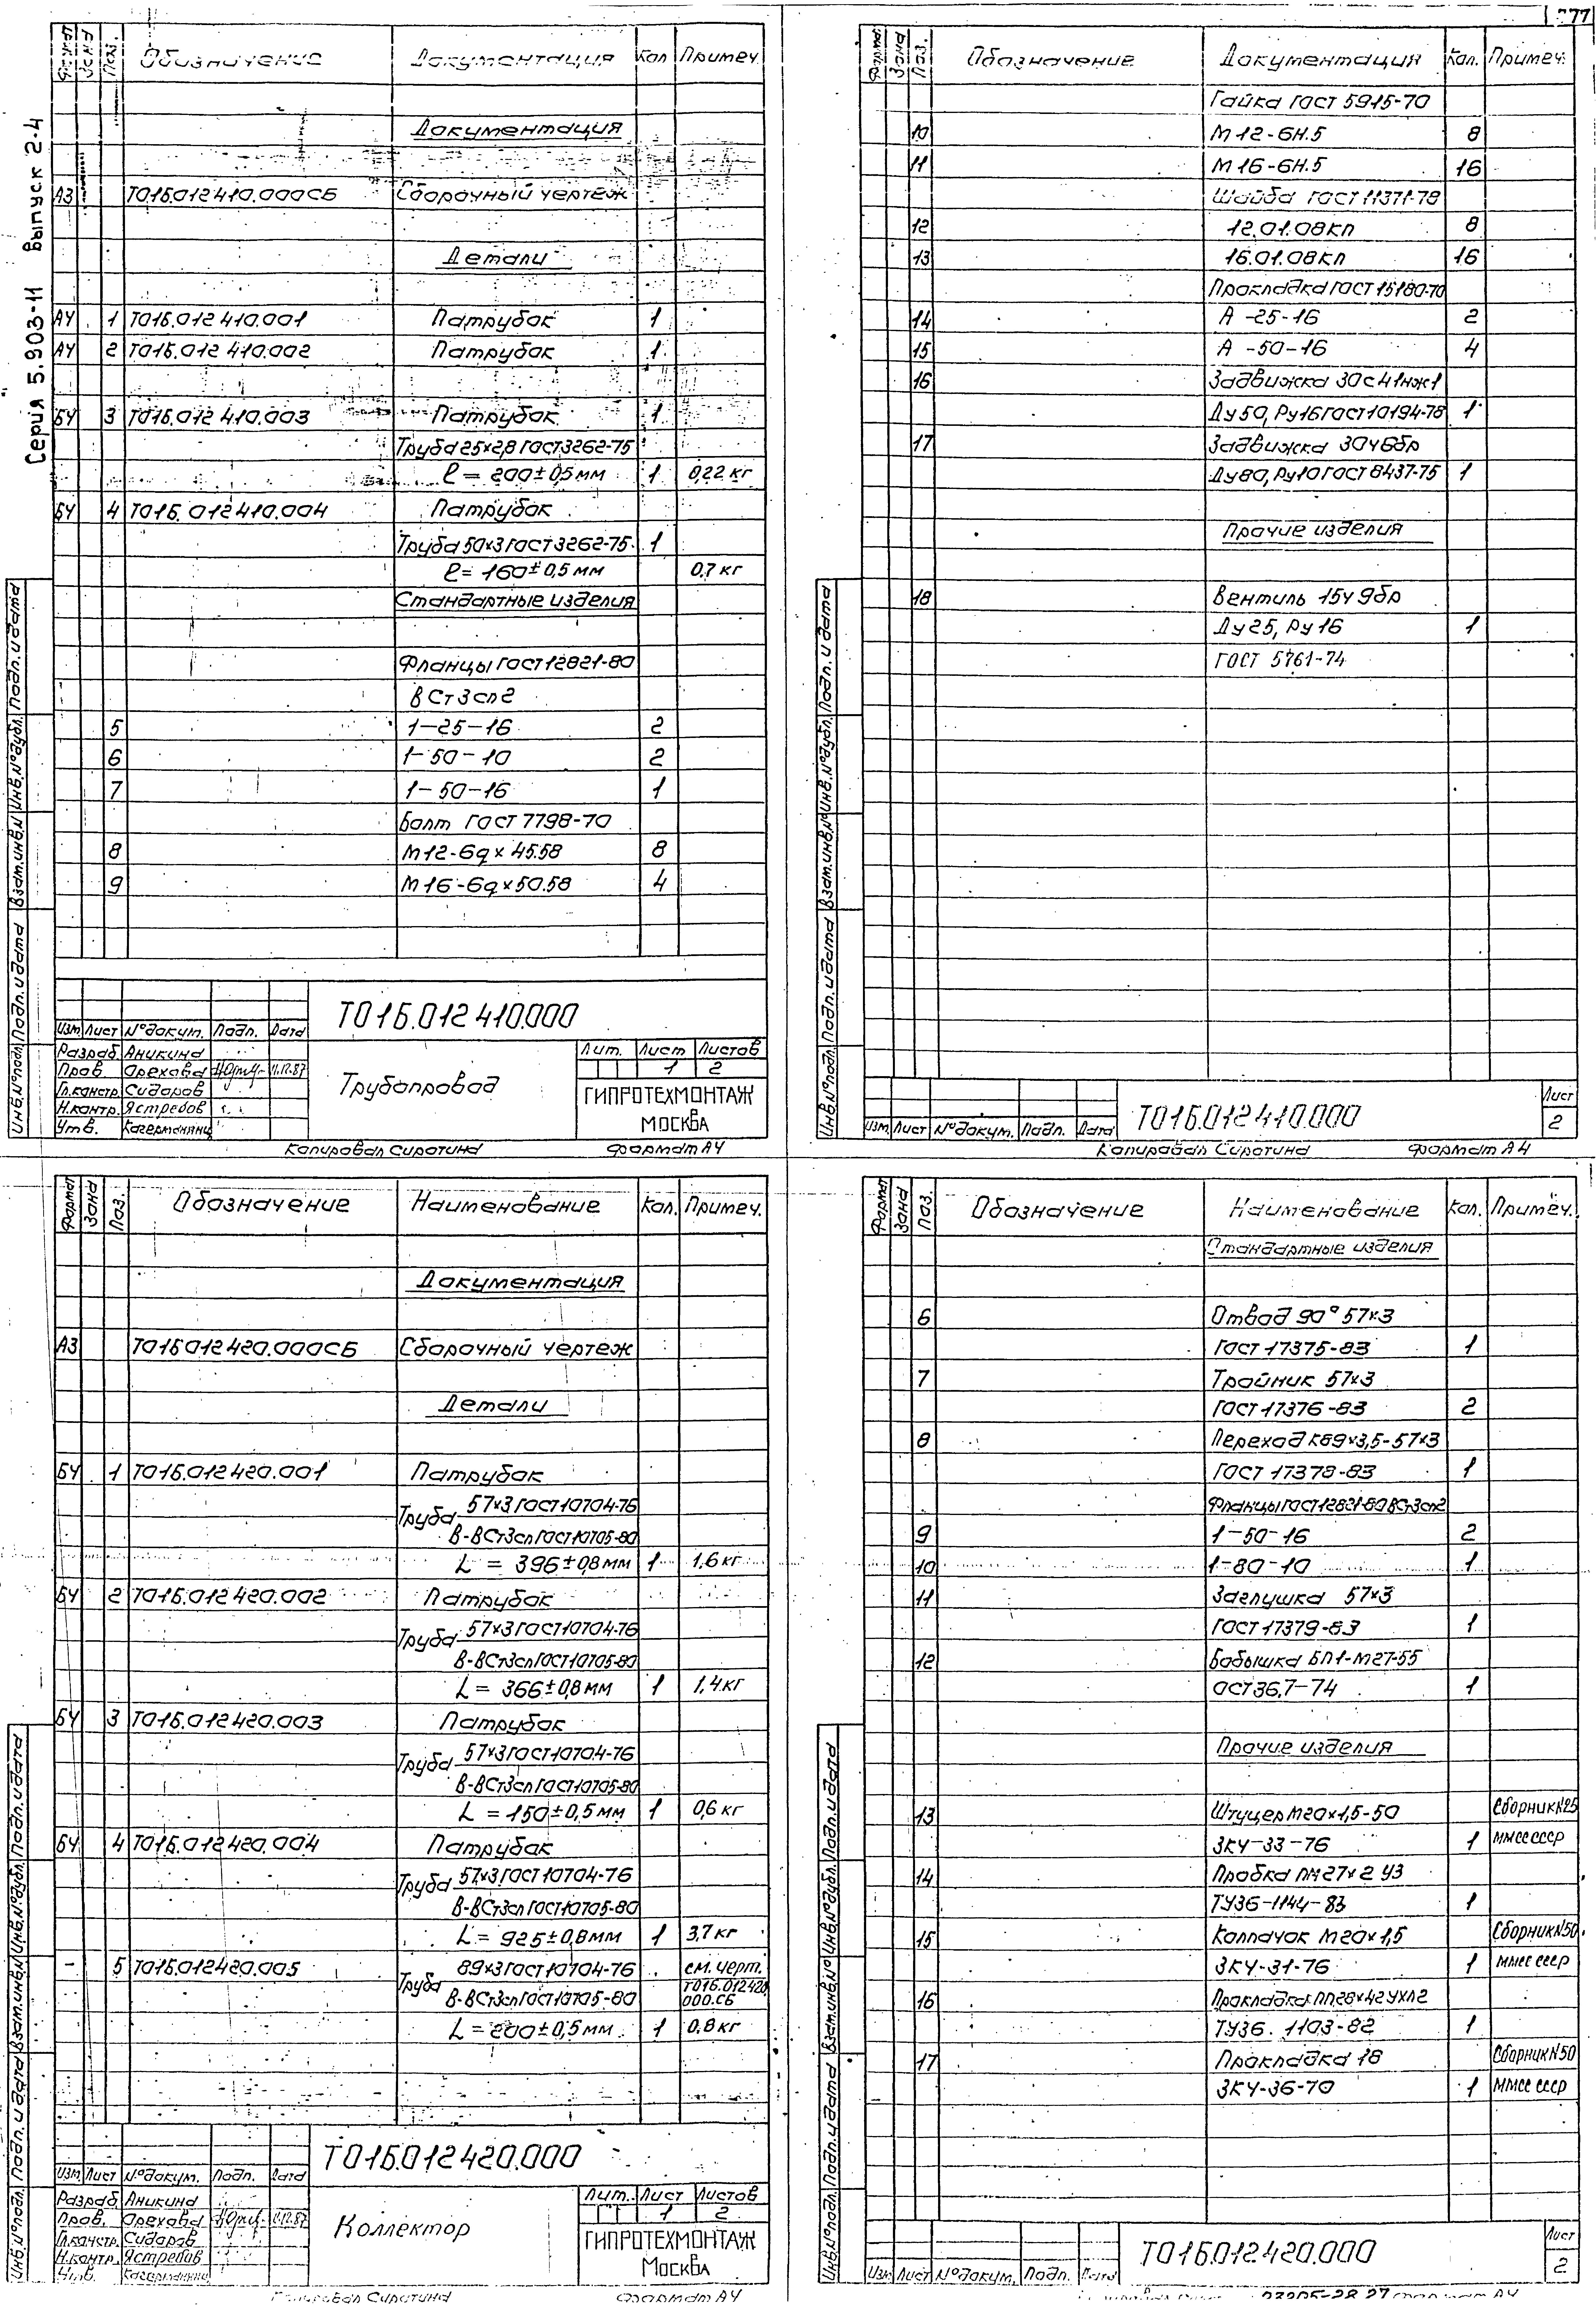 77
Серия 5.903-11 Выпуск 2-4
Формат Зона Поз. Обозначение Документация Кол Примеч.
Документация
А3 Т01Б.012410.000СБ Сборочный чертеж
Детали
А4 1 Т01Б.012 410.001 Патрубок 1
А4 2 Т01Б.012 410.002 Патрубок 1
БЧ 3 Т01Б.012 410.003 Патрубок 1
Труба 25×2,8 ГОСТ 3262-75
ℓ = 200±0,5 мм 1 0,22 кг
БЧ 4 Т01Б.012410.004 Патрубок
Труба 50×3 ГОСТ 3262-75 1
ℓ = 160±0,5 мм 0,7 кг
Стандартные изделия
Фланцы ГОСТ 12821-80
ВСт3сп2
5 1-25-16 2
6 1-50-10 2
7 1-50-16 1
Болт ГОСТ 7798-70
8 М12-6g×45.58 8
9 М16-6g×50.58 4
Т01Б.012410.000
Изм Лист № докум. Подп. Дата
Разраб. Аникина
Пров. Орехова 11.12.87
Гл.констр. Сидоров
Н.контр. Ястребов
Утв.
Трубопровод
Лит. Лист Листов
1 2
ГИПРОТЕХМОНТАЖ
МОСКВА
Инв.№ подл. Подп. и дата Взам.инв.№ Инв.№ дубл. Подп. и дата
Копировал Сиротина Формат А4
Формат Зона Поз. Обозначение Документация Кол. Примеч.
Гайка ГОСТ 5915-70
10 М12-6Н.5 8
11 М16-6Н.5 16
Шайба ГОСТ 11371-78
12 12.01.08кп 8
13 16.01.08кп 16
Прокладка ГОСТ 15180-70
14 А -25-16 2
15 А -50-16 4
16 Задвижка 30с41нж1
Ду 50, Ру16 ГОСТ 10194-78 1
17 Задвижка 30ч6бр
Ду80, Ру10 ГОСТ 8437-75 1
Прочие изделия
18 Вентиль 15ч9бр
Ду 25, Ру 16 1
ГОСТ 5761-74
Т01Б.012410.000
Лист
2
Изм Лист № докум. Подп. Дата
Инв.№ подл. Подп. и дата Взам.инв.№ Инв.№ дубл. Подп. и дата
Копировал Сиротина Формат А4
Формат Зона Поз. Обозначение Наименование Кол. Примеч.
Документация
А3 Т01Б.012420.000СБ Сборочный чертеж
Детали
БЧ 1 Т01Б.012420.001 Патрубок
Труба 57×3 ГОСТ 10704-76
В-ВСт3сп ГОСТ 10705-80
L = 396±0,8 мм 1 1,6 кг
БЧ 2 Т01Б.012420.002 Патрубок
Труба 57×3 ГОСТ 10704-76
В-ВСт3сп ГОСТ 10705-80
L = 366±0,8 мм 1 1,4 кг
БЧ 3 Т01Б.012420.003 Патрубок
Труба 57×3 ГОСТ 10704-76
В-ВСт3сп ГОСТ 10705-80
L = 150±0,5 мм 1 0,6 кг
БЧ 4 Т01Б.012420.004 Патрубок
Труба 57×3 ГОСТ 10704-76
В-ВСт3сп ГОСТ 10705-80
L = 925±0,8мм 1 3,7 кг
- 5 Т01Б.012420.005 Труба 89×3 ГОСТ 10704-76 см. черт.
В-ВСт3сп ГОСТ 10705-80 Т01Б.012420.000.СБ
L = 200±0,5 мм 1 0,8 кг
Т01Б.012420.000
Изм Лист № докум. Подп. Дата
Разраб. Аникина
Пров. Орехова 11.12.87
Гл.констр. Сидоров
Н.контр. Ястребов
Утв.
Коллектор
Лит. Лист Листов
1 2
ГИПРОТЕХМОНТАЖ
Москва
Инв.№ подл. Подп. и дата Взам.инв.№ Инв.№ дубл. Подп. и дата
Копировал Сиротина Формат А4
Формат Зона Поз. Обозначение Наименование Кол. Примеч.
Стандартные изделия
6 Отвод 90° 57×3
ГОСТ 17375-83 1
7 Тройник 57×3
ГОСТ 17376-83 2
8 Переход К89×3,5-57×3
ГОСТ 17378-83 1
Фланцы ГОСТ 12831-80 ВСт3сп2
9 1-50-16 2
10 1-80-10 1
11 Заглушка 57×3
ГОСТ 17379-83 1
12 Бобышка БП1-М27-55
ОСТ36,7-74 1
Прочие изделия
13 Штуцер М20×1,5-50 Сборник №25
ЗКЧ-33-76 1 ММСС СССР
14 Пробка ПМ27×2 У3
ТУ36-1144-83 1
15 Колпачок М20×1,5 Сборник №50
ЗКЧ-31-76 1 ММСС СССР
16 Прокладка ПП28×42 УХЛ2
ТУ36. 1103-82 1
17 Прокладка 18 Сборник №50
ЗКЧ-36-70 1 ММСС СССР
Т01Б.012420.000
Лист
2
Изм Лист № докум. Подп. Дата
Инв.№ подл. Подп. и дата Взам.инв.№ Инв.№ дубл. Подп. и дата
23205-28 27 Формат А4